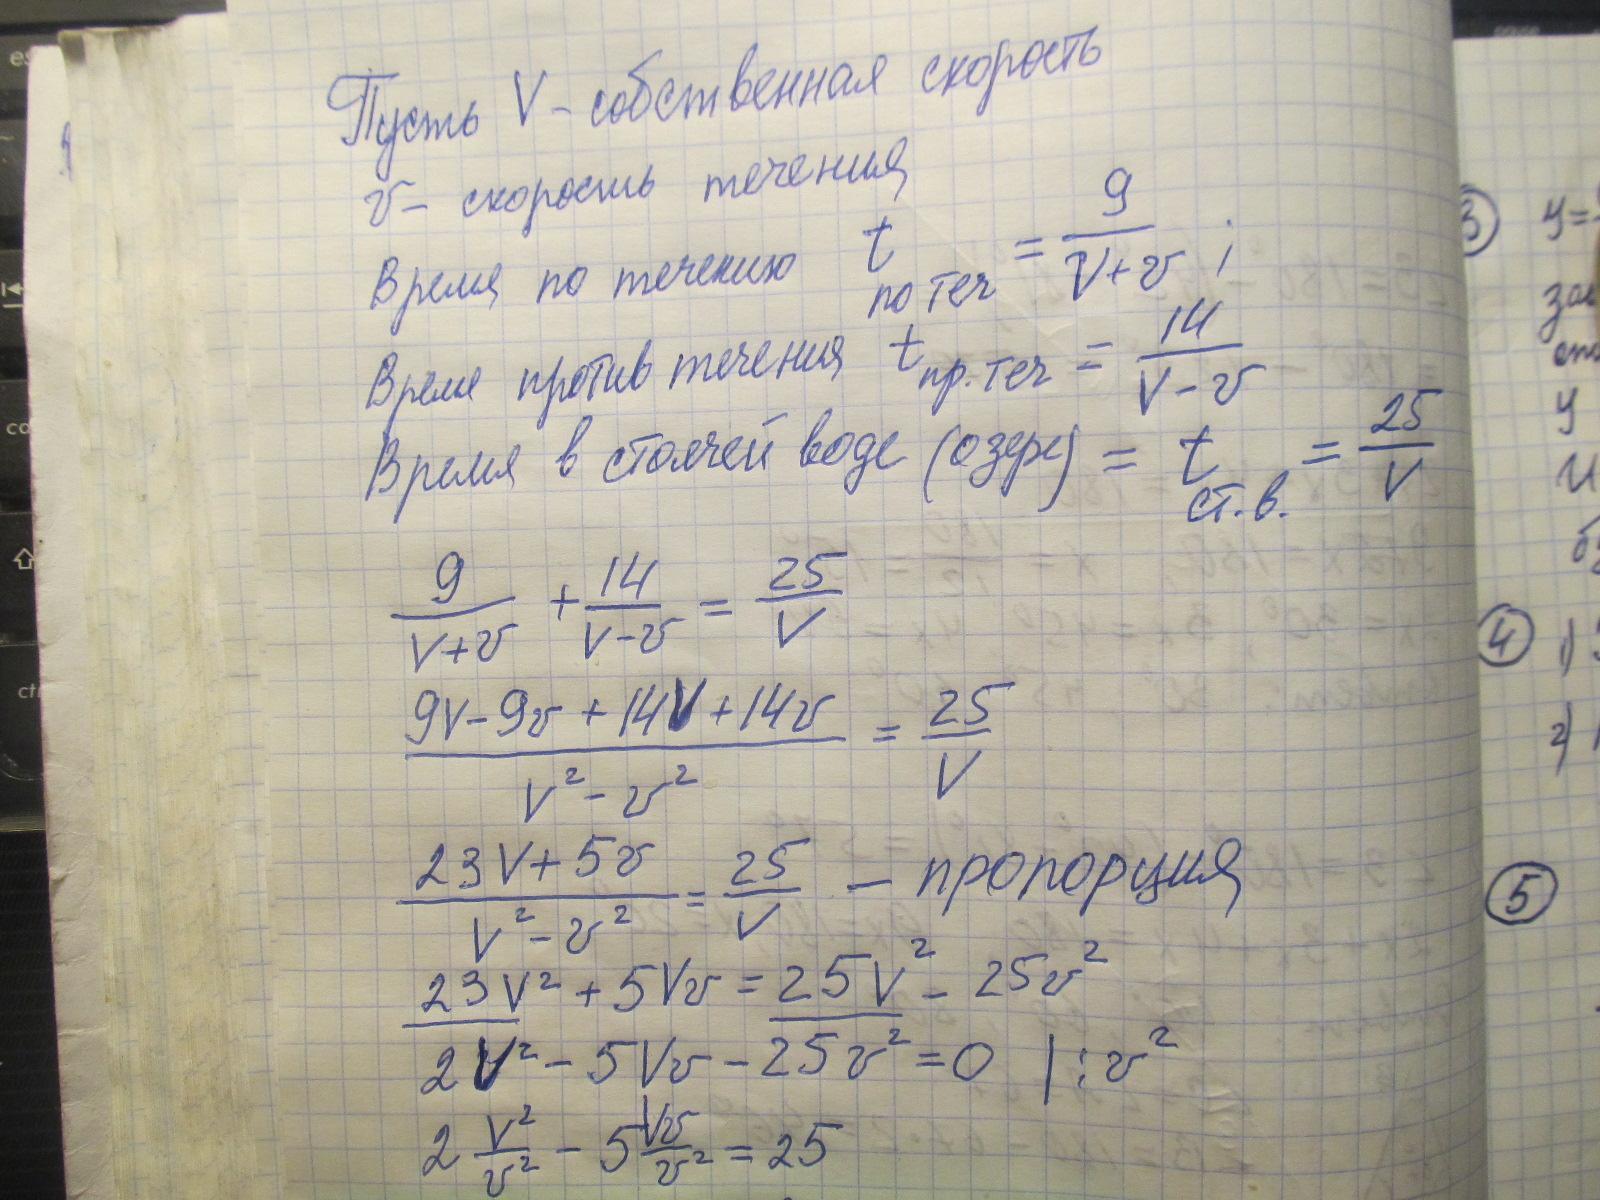 Пусть V – собственная скорость
v – скорость течения
Время по течению t по теч = 9/(V+v) ;
Время против течения t пр. теч = 14/(V-v)
Время в стоячей воде (озере) = t ст. в. = 25/V
9/(V+v) + 14/(V-v) = 25/V
(9V - 9v + 14V + 14v)/(V² - v²) = 25/V
(23V + 5v)/(V² - v²) = 25/V – пропорция
23V² + 5Vv = 25V² - 25v²
2V² - 5Vv - 25v² = 0 | : v²
2 V²/v² - 5 Vv/v² = 25
3
y =
4
1)
2)
5